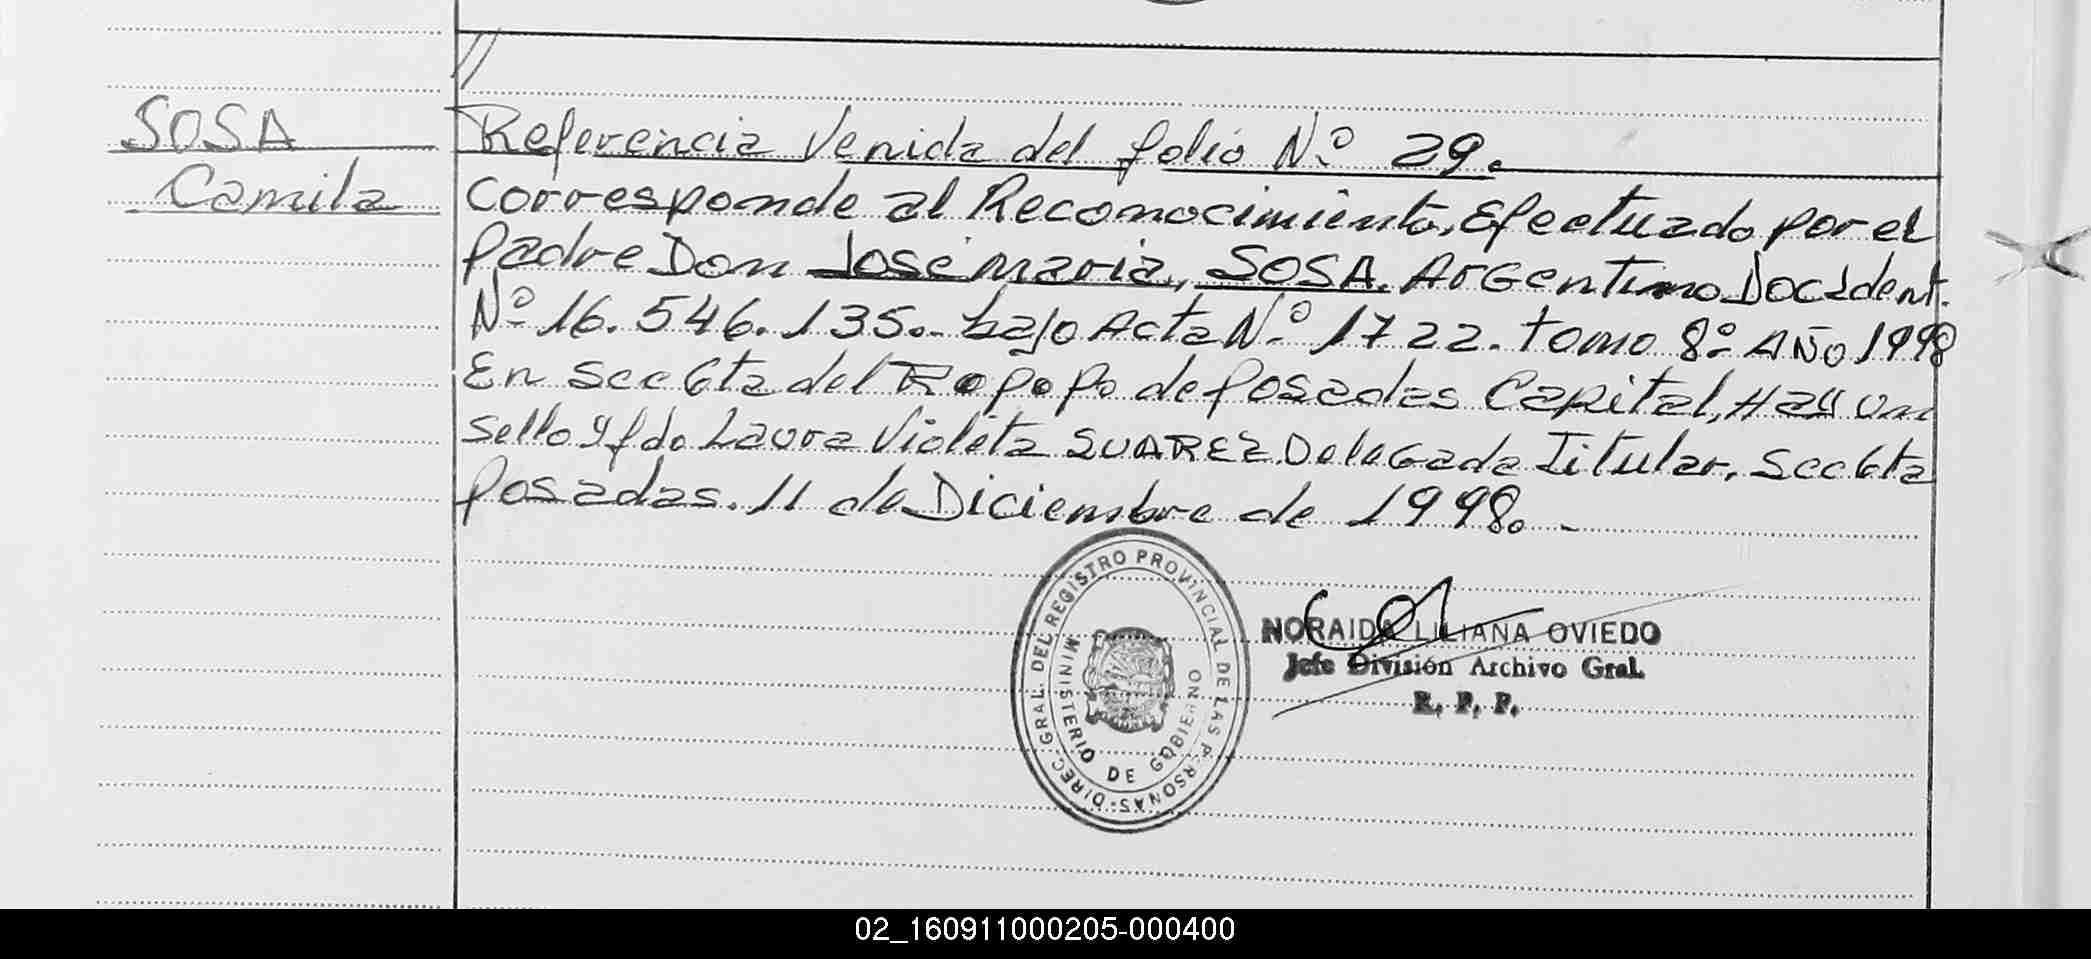 //
SOSA
Camila
Referencia Venida del folio Nº 29.
Corresponde al Reconocimiento, Efectuado por el
padre Don José maria, SOSA. Argentino Doc Ident.
Nº 16.546.135.- bajo Acta Nº 1722. tomo 8º Año 1998
En Secc 6ta del R.p.p. de posadas Capital, Hay un
sello y fdo Laura Violeta SUAREZ Delegada Titular, Secc 6ta
posadas. 11 de Diciembre de 1998. -
DIREC. GRAL. DEL REGISTRO PROVINCIAL DE LAS PERSONAS-
MINISTERIO DE GOBIERNO
NORAIDA LILIANA OVIEDO
Jefe División Archivo Gral.
R. P. P.
02_160911000205-000400